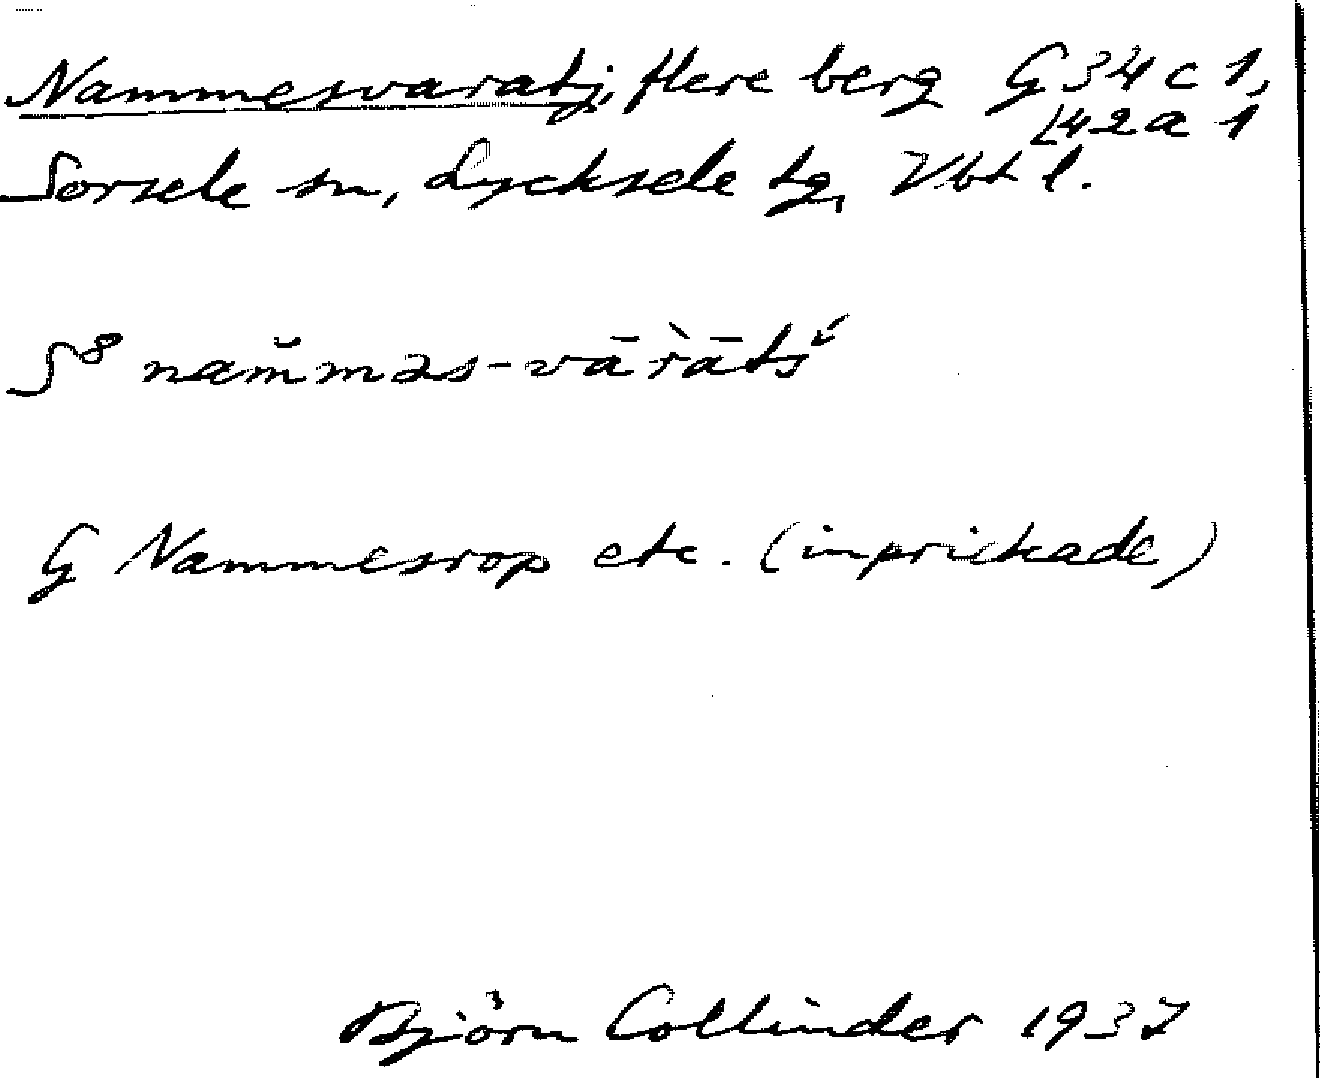 Nammesvaratj, flere berg G 34 c 1,
L42a 1
Sorsele sn, Lycksele tg, Vbt l.
S8 nam̆məs-vār̀ātś
G Nammesrop etc. (inprickade)
Björn Collinder 1937